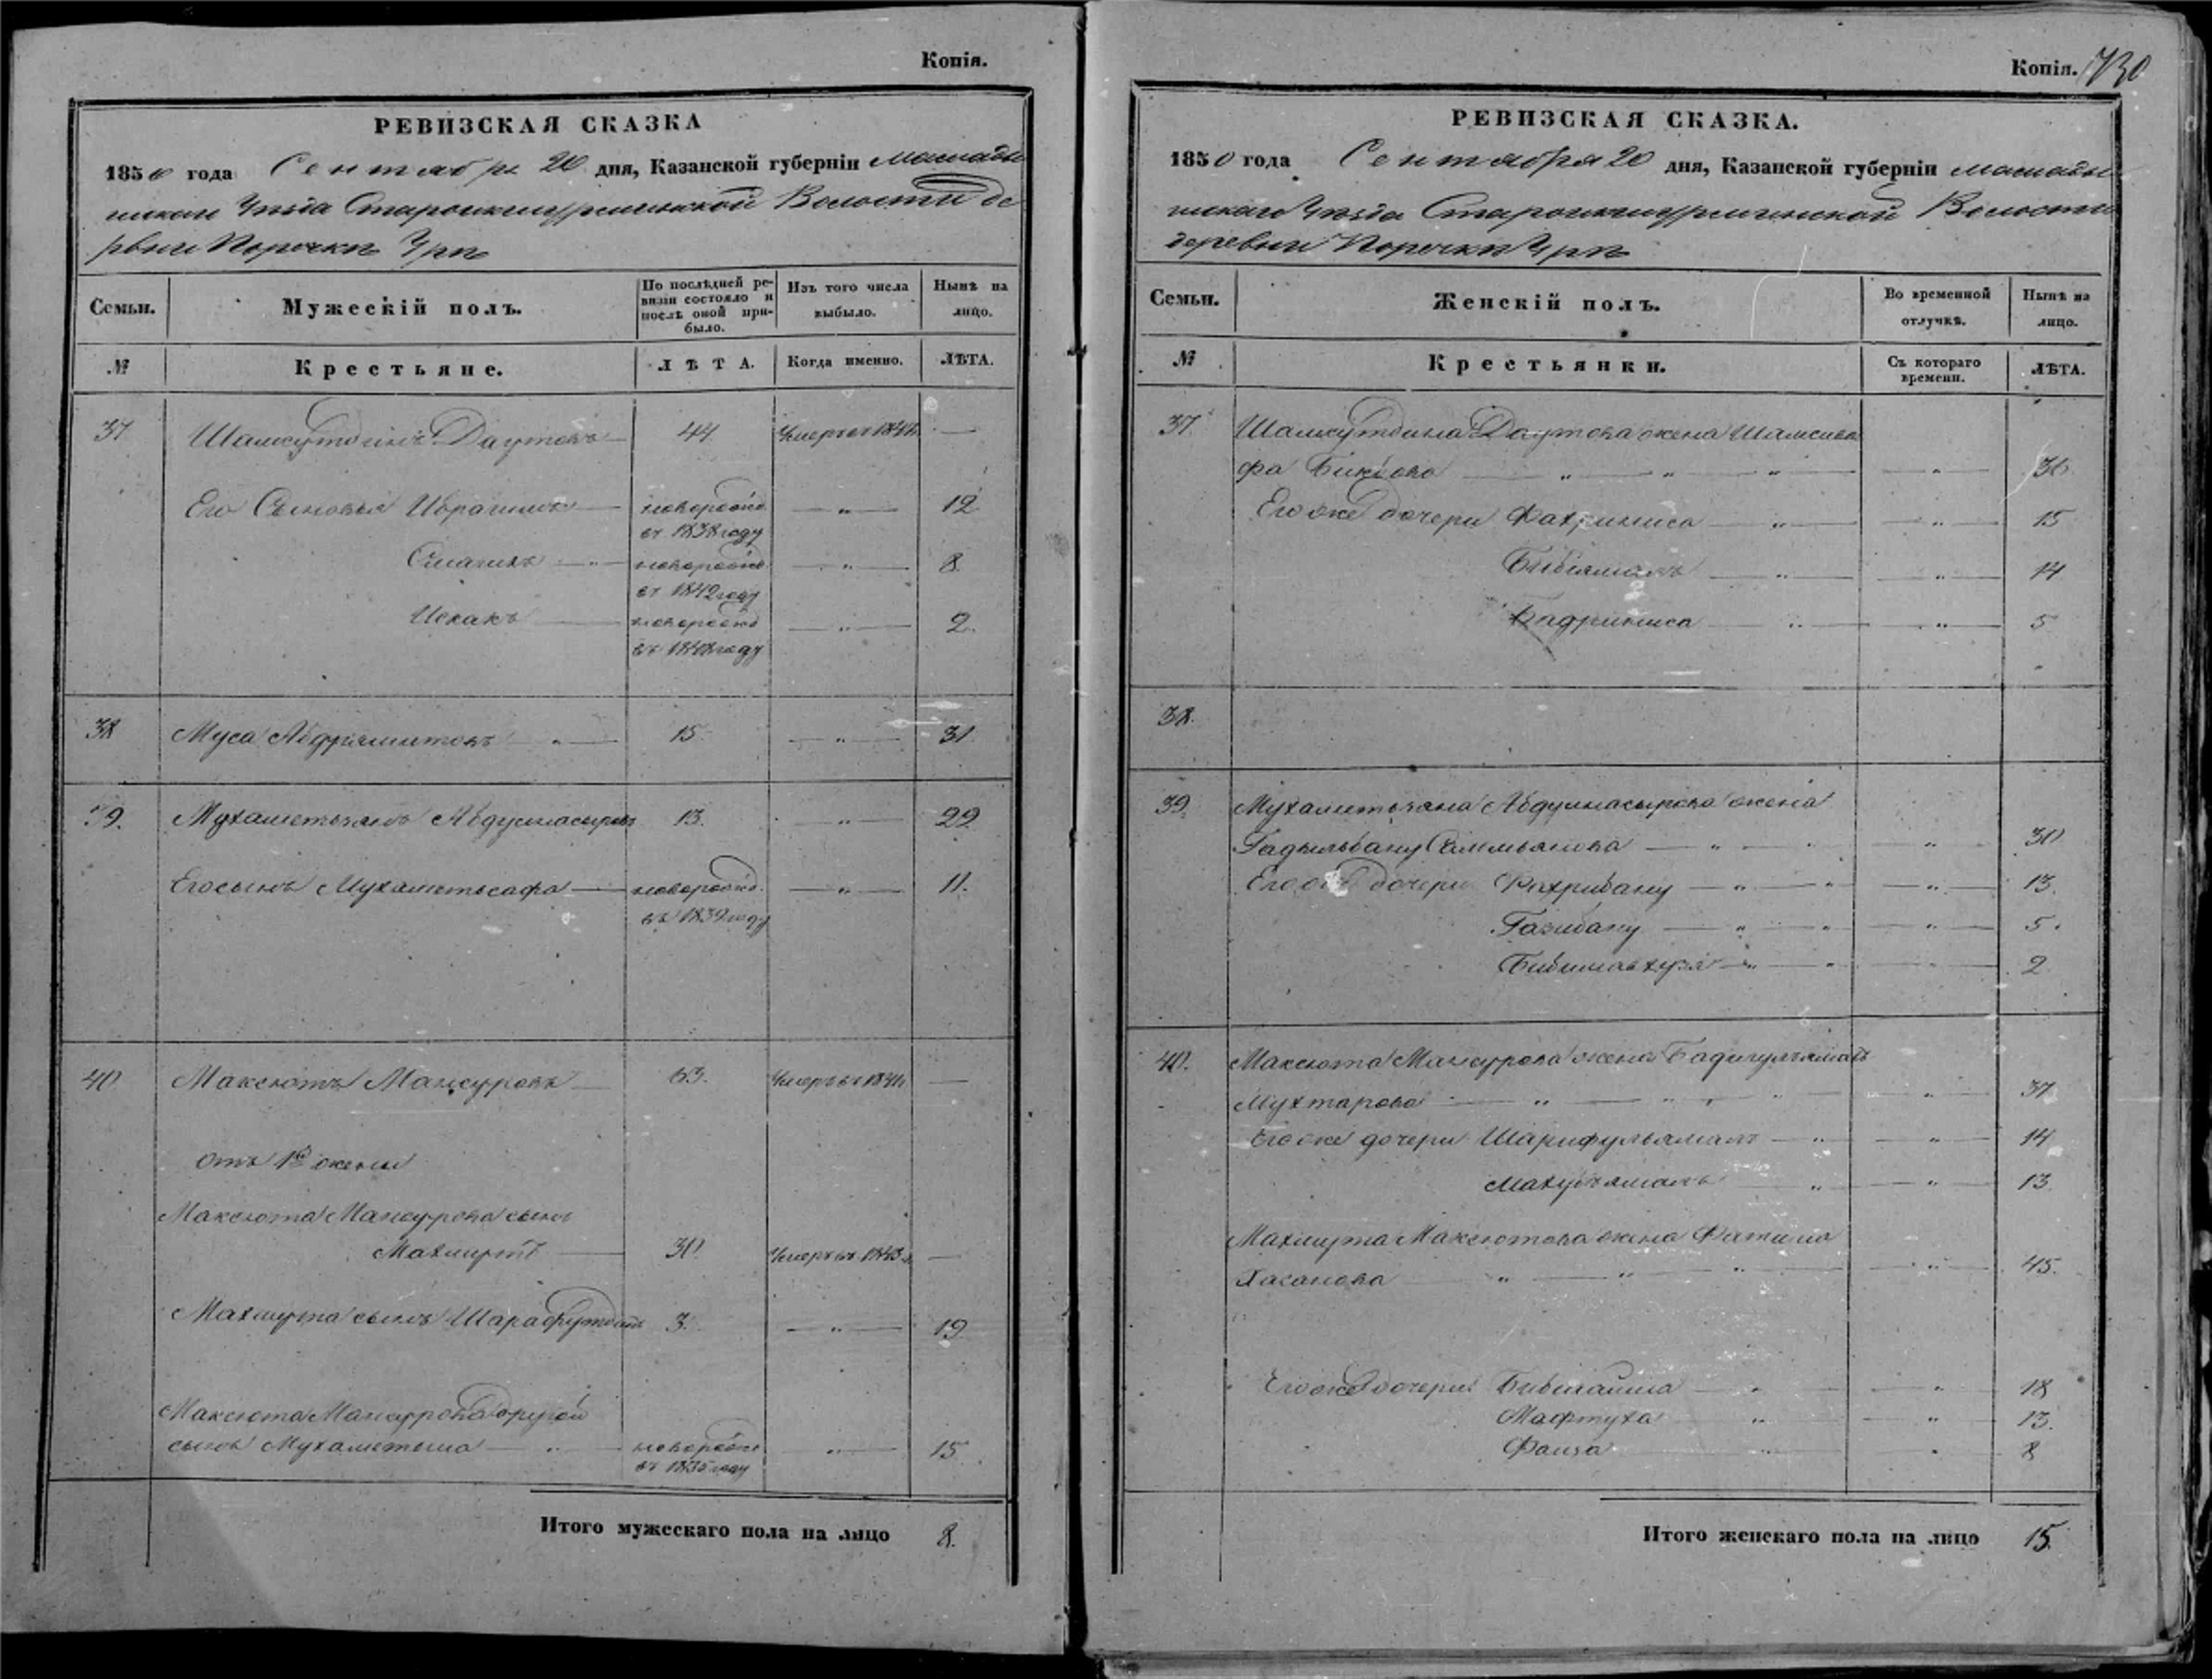 Копія.
РЕВИЗСКАЯ СКАЗКА
1850 года Сентября 20 дня, Казанской губерніи Мамады
шскаго Уѣзда Волости де
ревни Порѣчки Урѣ
Семьи.
Мужескій полъ.
По послѣдней ре-
визіи состояло и
послѣ оной при-
было.
Изъ того числа
выбыло.
Нынѣ на
лицо.
№
Крестьяне.
ЛѢТА.
Когда именно.
ЛѢТА.
37 Шамсутдинъ Даутовъ 44 Умеръ въ —
Его Сыновья Ибрагимъ новорожд. — „ — 12
въ 1838 году
Смагилъ — „ — новорожд. — „ — 8
въ 1842 году
Исхакъ новорожд — „ — 2
въ 1848 году
38 Муса Абдряшитовъ — „ — 15 — „ — 31
39. Мухаметьзянъ Абдулнасыровъ 13. — „ — 29
Его сынъ Мухаметьсафа — новорожд. — „ — 11.
въ 1839 году
40 Максютъ Мансуровъ 63. Умеръ въ —
Отъ 1й жены
Максюта Мансурова сынъ
Махмутъ — 30 Умеръ въ 1843 —
Махмута сынъ Шарафутдинъ 3. — „ — 19
Максюта Мансурова другой
сынъ Мухаметша — „ — новорожд. — „ — 15
въ 1835 году
Итого мужескаго пола на лицо 8.
Копія. 730
РЕВИЗСКАЯ СКАЗКА.
1850 года Сентября 20 дня, Казанской губерніи Мамады
шскаго Уѣзда Волости
деревни Порѣчки Урѣ
Семьи.
Женскій полъ.
Во временной
отлучкѣ.
Нынѣ на
лицо.
№
Крестьянки.
Съ котораго
времени.
ЛѢТА.
37. Шамсутдина Даутова жена Шамсива
фа Бикѣева — „ — „ — „ — — „ — 36
Его же дочери Фахриниса — „ — — „ — 15
Бибіямалъ — „ — — „ — 14
Бадриниса — „ — — „ — 5
38.
39. Мухаметьзяна Абдулнасырова жена
Гадыльбану — „ — „ — „ — 30
Его же дочери Фахрибану — „ — „ — „ — 13.
Газибану — „ — „ — „ — 5.
— „ — „ — — 2
40. Максюта Мансурова жена
Мухтарова — „ — „ — „ — „ — 37
Его же дочери Шарифульямалъ — „ — — „ — 14
Махубъямалъ — „ — — „ — 13
Махмута Максютова жена Фатима
Хасанова — „ — „ — „ — — „ — 45.
Его же дочери Бибигайша — „ — — „ — 18
Мафтуха — „ — — „ — 13.
Фаиза „ 8
Итого женскаго пола на лицо 15.